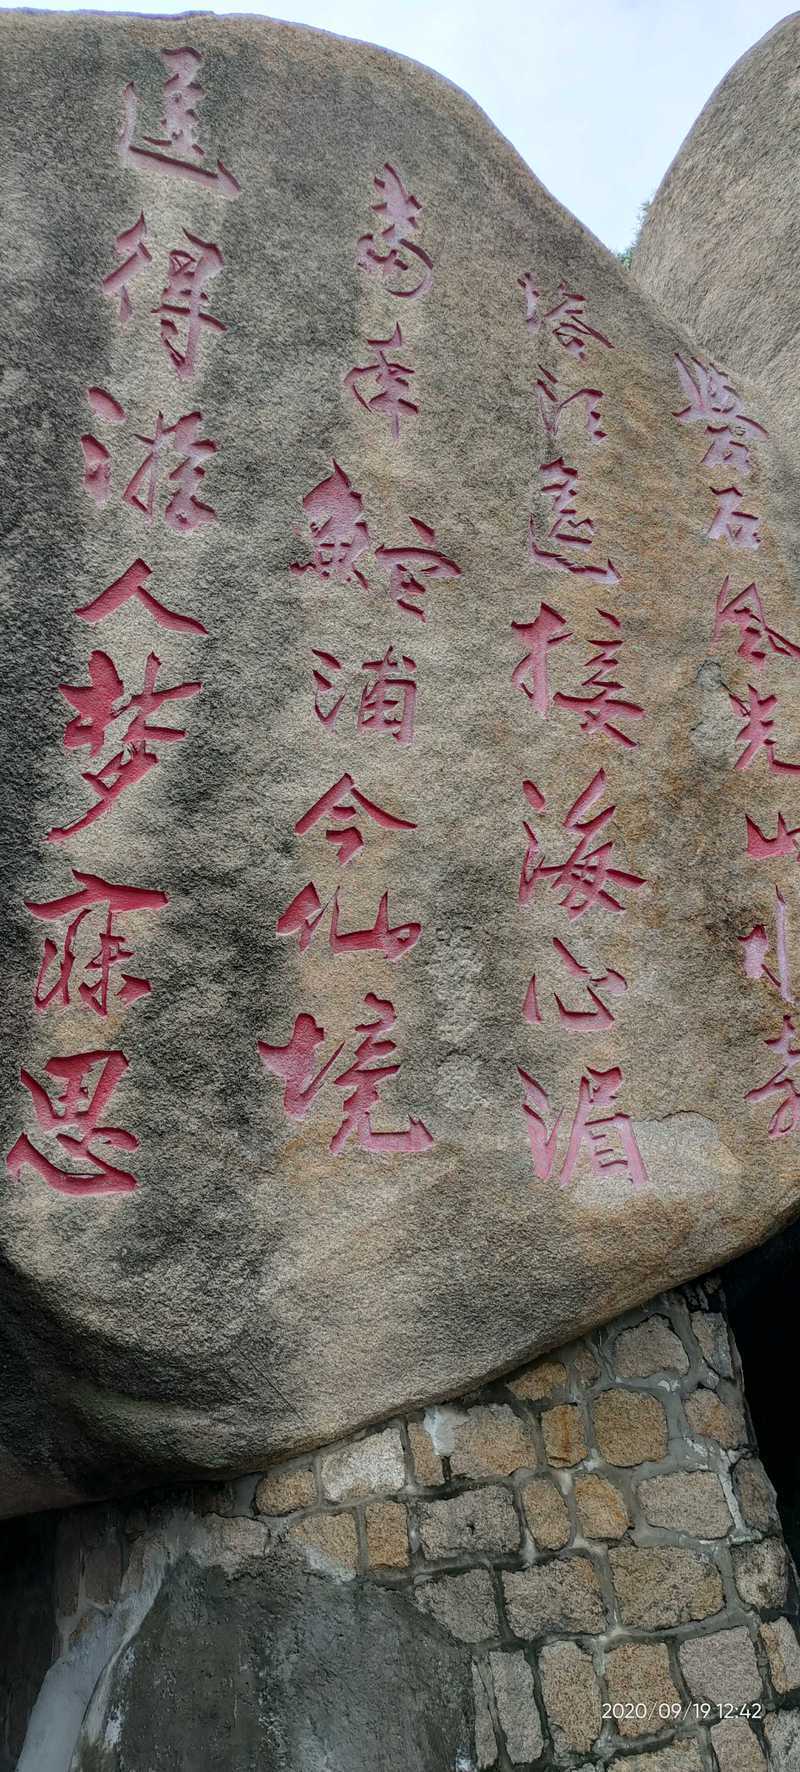 礐石金光山水奇
榕江遠接海心湄
當年鮀浦今仙境
逗得游人夢寐思
2020/09/19 12:42